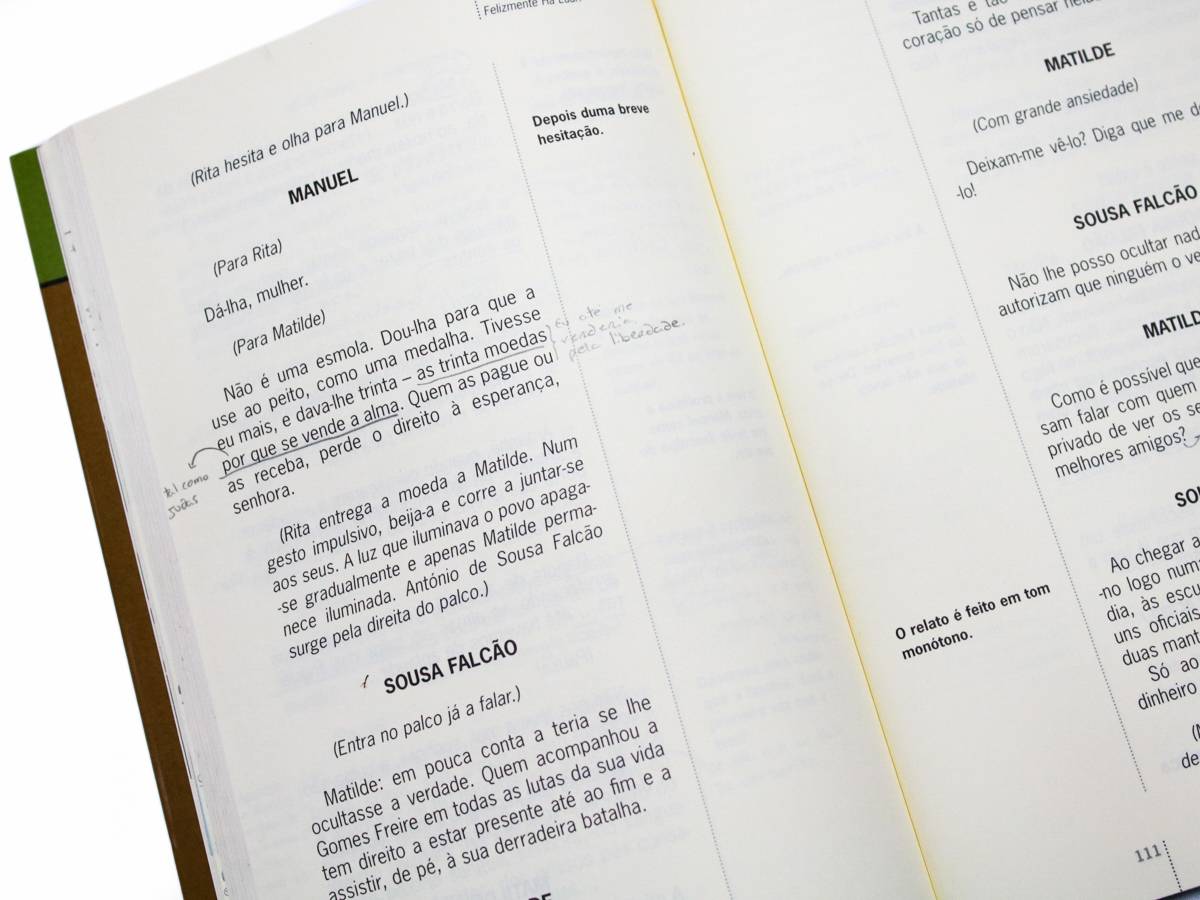 Felizmente Há Luar
(Rita hesita e olha para Manuel.)
MANUEL
(Para Rita)
Dá-lha, mulher.
(Para Matilde)
Não é uma esmola. Dou-lha para que a
use ao peito, como uma medalha. Tivesse
eu mais, e dava-lhe trinta – as trinta moedas
por que se vende a alma. Quem as pague ou
as receba, perde o direito à esperança,
senhora.
(Rita entrega a moeda a Matilde. Num
gesto impulsivo, beija-a e corre a juntar-se
aos seus. A luz que iluminava o povo apaga-
-se gradualmente e apenas Matilde perma-
nece iluminada. António de Sousa Falcão
surge pela direita do palco.)
SOUSA FALCÃO
(Entra no palco já a falar.)
Matilde: em pouca conta a teria se lhe
ocultasse a verdade. Quem acompanhou a
Gomes Freire em todas as lutas da sua vida
tem direito a estar presente até ao fim e a
assistir, de pé, à sua derradeira batalha.
Depois duma breve
hesitação.
Eu até me
venderia
pela liberdade.
tal como
Judas
Tantas e
coração só de pensar
MATILDE
(Com grande ansiedade)
Deixam-me vê-lo? Diga que me
-lo!
SOUSA FALCÃO
Não lhe posso ocultar
autorizam que ninguém o
MATILD
Como é possível que
sam falar com quem
privado de ver os
melhores amigos?
Ao chegar a
-no logo
dia, às
uns oficiais
duas
Só ao
dinheiro
de
O relato é feito em tom
monótono.
111